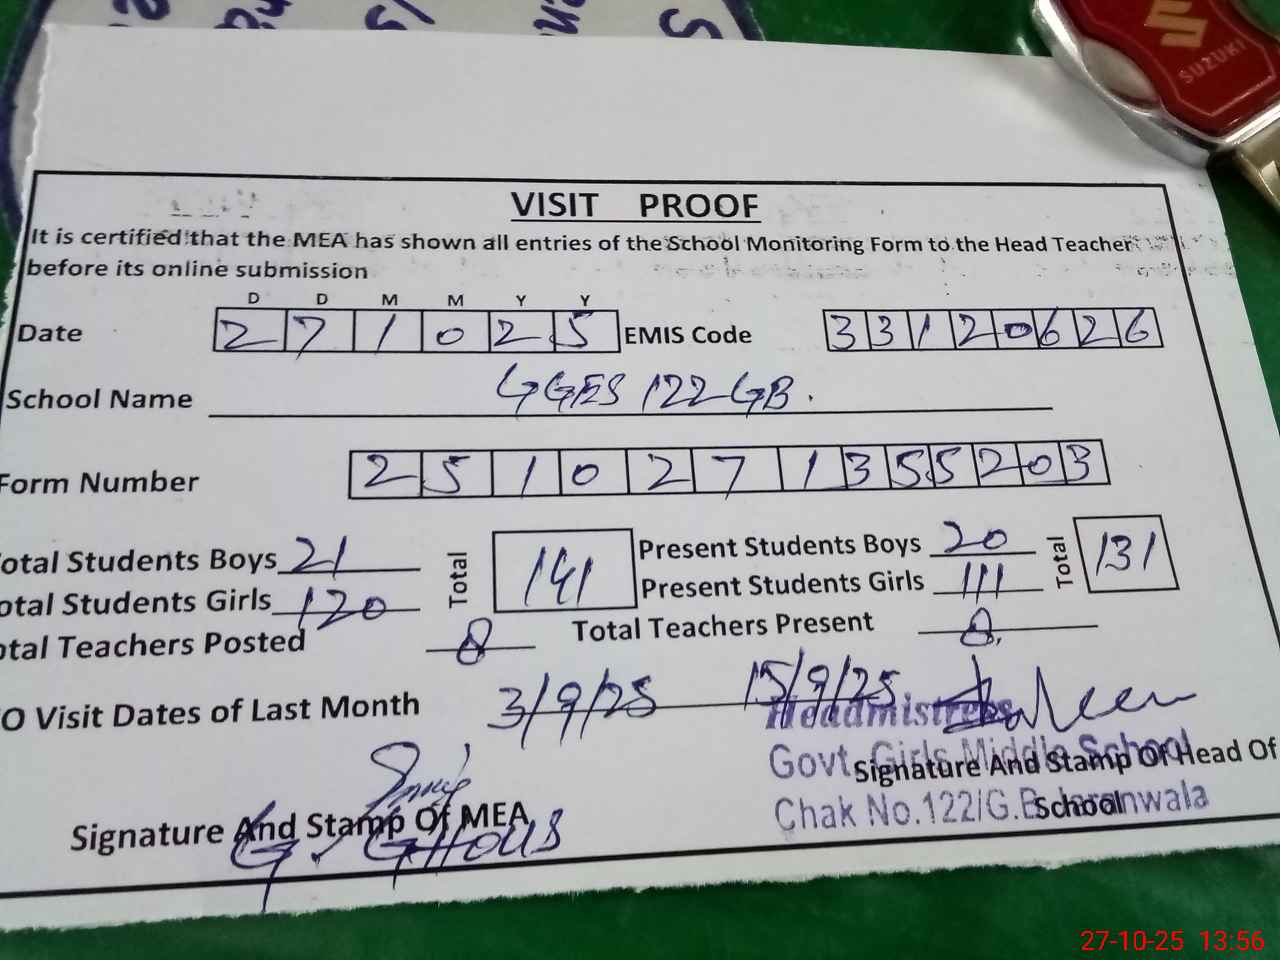 SUZUKI
VISIT PROOF
It is certified that the MEA has shown all entries of the School Monitoring Form to the Head Teacher
before its online submission
D D M M Y Y
Date 2 7 1 0 2 5 EMIS Code 3 3 1 2 0 6 2 6
School Name GGES 122 GB.
Form Number 2 5 1 0 2 7 1 3 5 5 2 0 3
otal Students Boys 21 Total 141 Present Students Boys 20 Total 131
otal Students Girls 120 Present Students Girls 111
otal Teachers Posted 8 Total Teachers Present 8
O Visit Dates of Last Month 3/9/25 15/9/25
Headmistress
Govt. Girls Middle School
Signature And Stamp Of Head Of
School
Chak No.122/G.B Jaranwala
Signature And Stamp Of MEA
G. GHOUS
27-10-25 13:56